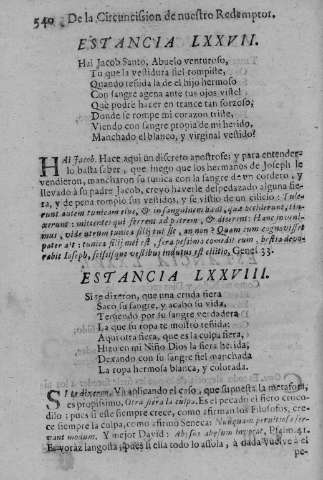 540 De la Circuncission de nuestro Redemptor.
ESTANCIA LXXVII.
Hai Jacob Santo, Abuelo venturoso,
Tu que la vestidura fiel rompiste,
Quando tesida la de el hijo hermoso
Con sangre agena ante tus ojos viste!
Que podrè hacer en trance tan forzoso,
Donde se rompe mi corazon triste,
Viendo con sangre propia de mi herido,
Manchado el blanco, y virginal vestido?
HAi Jacob. Hace aqui un discreto apostrofe: y para entender-
lo basta saber, que luego que los hermanos de Joseph le
vendieron, mancharon su tunica con la sangre de un cordero, y
llevado à su padre Jacob, creyò haverle despedazado alguna fie-
ra, y de pena rompiò sus vestidos, y se vistio de un cilicio: Tule-
runt autem tunicam eius, & in sanguinem hædi, quæ occiderant, tin-
xerunt: mittentes qui ferrent ad patrem, & dicerent: Hanc invenì-
mus, vide utrum tunica filij tui sit, an non? Quam cum cognovisset
pater ait: tunica filij mei est, fera pessima comedit eum, bestia devo-
rabit Ioseph, scisisque vestibus indutus est cilitio, Genes. 33.
ESTANCIA LXXVIII.
Si se dixeron, que una cruda fiera
Sacò su sangre, y acabò su vida,
Teniendo por su sangre verdadera
La que su ropa te mostro teñida:
Aqui otra fiera, que es la culpa fiera,
Hizo en mi Niño Dios la fiera herida,
Dexando con su sangre fiel manchada
La ropa hermosa blanca, y colorada.
SI te dixeron. Va aplicando el caso, que supuesta la metafora,
es propissimo. Otra fiera la culpa. Es el pecado el fiero croco-
dilo: pues si este siempre crece, como afirman los Filosofos, cre-
ce siempre la culpa, como afirmò Seneca: Nunquam peruitiosa ser-
vant modum. Y mejor David: Abysus abysum invocat, Psalm. 41.
Es voraz langosta, pues si ella todo lo assola, à dada vuelve à el
pe-